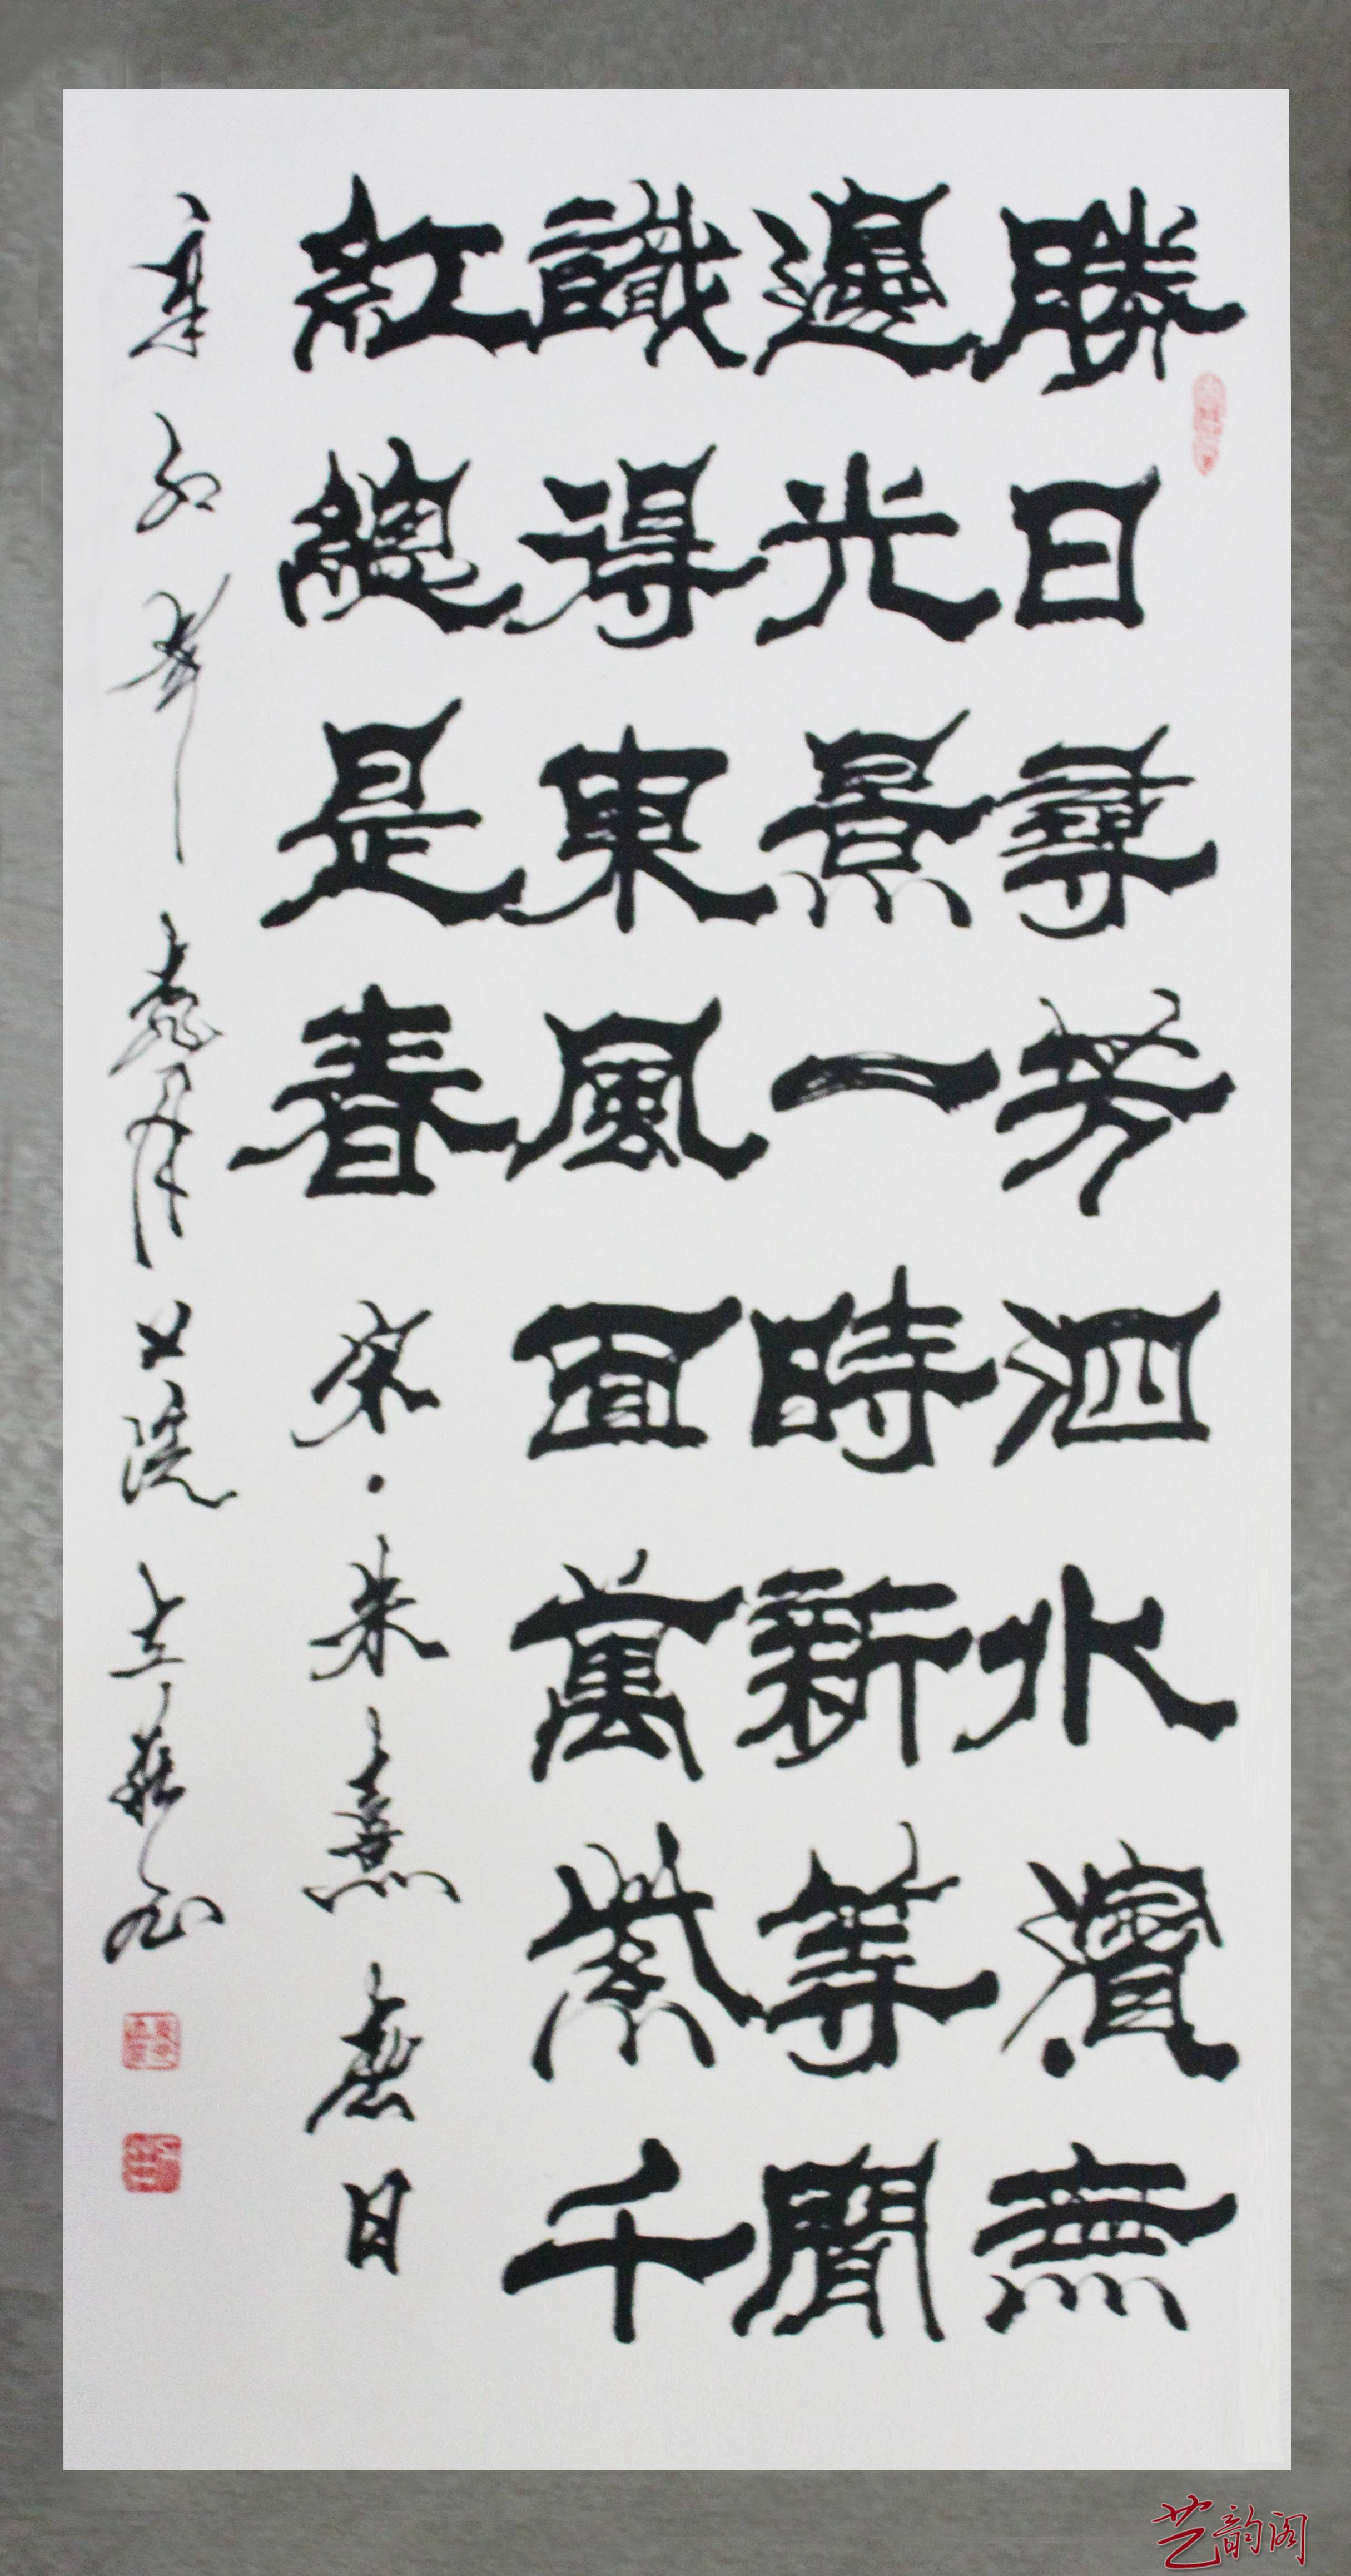 勝日尋芳泗水濱無
邊光景一時新等閒
識得東風面萬紫千
紅總是春 宋·朱熹春日
辛卯年
艺韵阁